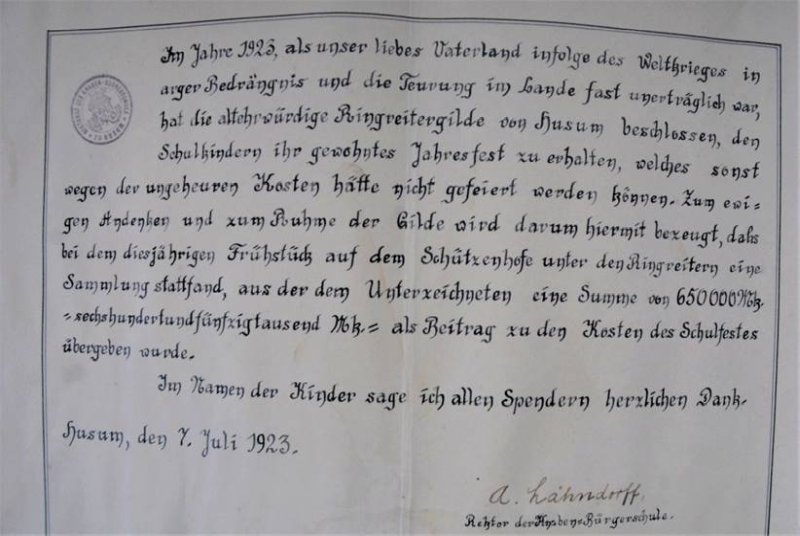 Im Jahre 1923, als unser liebes Vaterland infolge des Weltkrieges in
arger Bedrängnis und die Teurung im Lande fast unerträglich war,
hat die altehrwürdige Ringreitergilde von Husum beschlossen, den
Schulkindern ihr gewohntes Jahresfest zu erhalten, welches sonst
wegen der ungeheuren Kosten hätte nicht gefeiert werden können. Zum ewi=
gen Andenken und zum Ruhme der Gilde wird darum hiermit bezeugt, dahs
bei dem diesjährigen Frühstück auf dem Schützenhofe unter den Ringreitern eine
Sammlung stattfand, aus der dem Unterzeichneten eine Summe von 650000 Mk.
= sechshundertundfünfzigtausend Mk. = als Beitrag zu den Kosten des Schulfestes
übergeben wurde.
Im Namen der Kinder sage ich allen Spendern herzlichen Dank.
Husum, den 7. Juli 1923.
A. Lähndorff,
Rektor der Knaben=Bürgerschule.